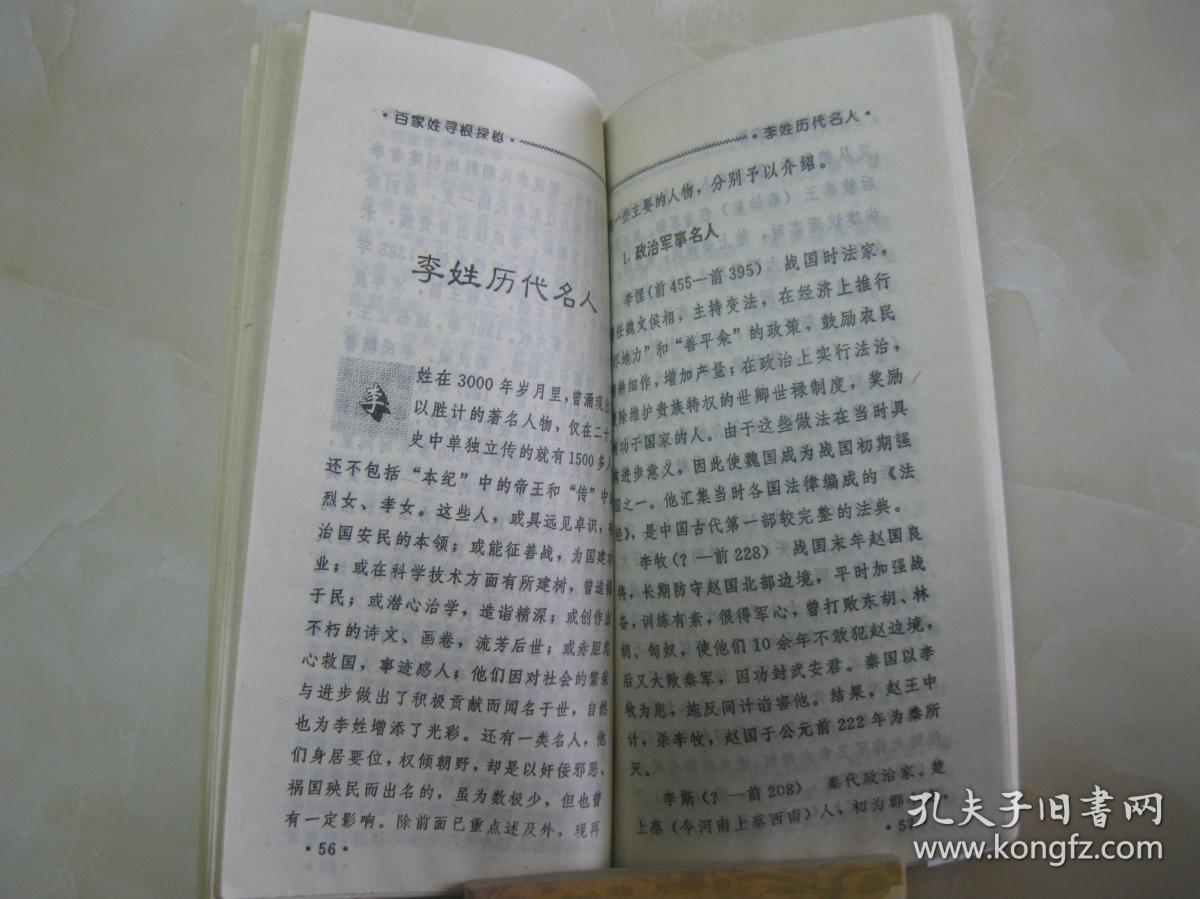 ·百家姓寻根探秘·
李姓历代名人
李
姓在3000年岁月里，曾涌现出
以胜计的著名人物，仅在二十
史中单独立传的就有1500多人
还不包括“本纪”中的帝王和“传”中
烈女、孝女。这些人，或具远见卓识，有
治国安民的本领；或能征善战，为国建功
业；或在科学技术方面有所建树，曾造福
于民；或潜心治学，造诣精深；或创作出
不朽的诗文、画卷，流芳后世；或赤胆忠
心救国，事迹感人；他们因对社会的繁荣
与进步做出了积极贡献而闻名于世，自然
也为李姓增添了光彩。还有一类名人，他
们身居要位，权倾朝野，却是以奸佞邪恶、
祸国殃民而出名的，虽为数极少，但也曾
有一定影响。除前面已重点述及外，现再
·56·
·李姓历代名人·
一些主要的人物，分别予以介绍。
1.政治军事名人
李悝（前455—前395） 战国时法家，
任魏文侯相，主持变法，在经济上推行
尽地力”和“善平籴”的政策，鼓励农民
耕细作，增加产量；在政治上实行法治，
废除维护贵族特权的世卿世禄制度，奖励
有功于国家的人。由于这些做法在当时具
有进步意义，因此使魏国成为战国初期强
国之一。他汇集当时各国法律编成的《法
经》，是中国古代第一部较完整的法典。
李牧（？—前228） 战国末年赵国良
将，长期防守赵国北部边境，平时加强战
备，训练有素，很得军心，曾打败东胡、林
胡、匈奴，使他们10余年不敢犯赵边境，
后又大败秦军，因功封武安君。秦国以李
牧为患，施反间计诣害他。结果，赵王中
计，杀李牧，赵国于公元前222年为秦所
灭。
李斯（？—前208） 秦代政治家。楚
上蔡（今河南上蔡西南）人、初为郡
5
孔夫子旧书网
www.kongfz.com